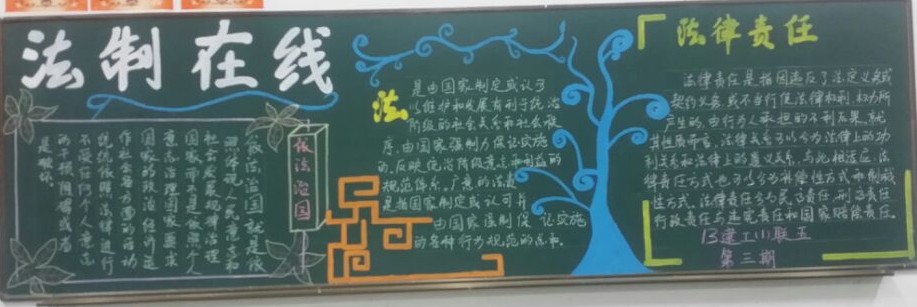 法制在线
依法治国
依法治国就是依
照体现人民意志和
社会发展规律治理
国家而不是依照个人
意志治理国家要求
国家的政治经济运
作社会各方面的活动
统统依照法律进行
不受任何个人意志
的干预阻碍或者
是破坏。
法
是由国家制定或认可
以维护和发展有利于统治
阶级的社会关系和社会秩
序,由国家强制力保证实施
的,反映统治阶级意志和利益的
规范体系。广意的法是
是指国家制定或认可并
由国家强制保证实施
的各种行为规范的总和。
法律责任
法律责任是指因违反了法定义务或
契约义务,或不当行使法律权利、权力所
产生的,由行为人承担的不利后果。就
其性质而言,法律关系可以分为法律上的功
利关系和法律上的道义关系,与此相适应,法
律责任方式也可以分为补偿性方式和制裁
性方式。法律责任分为民事责任,刑事责任
行政责任与违宪责任和国家赔偿责任。
13建工(1)联五
第三期